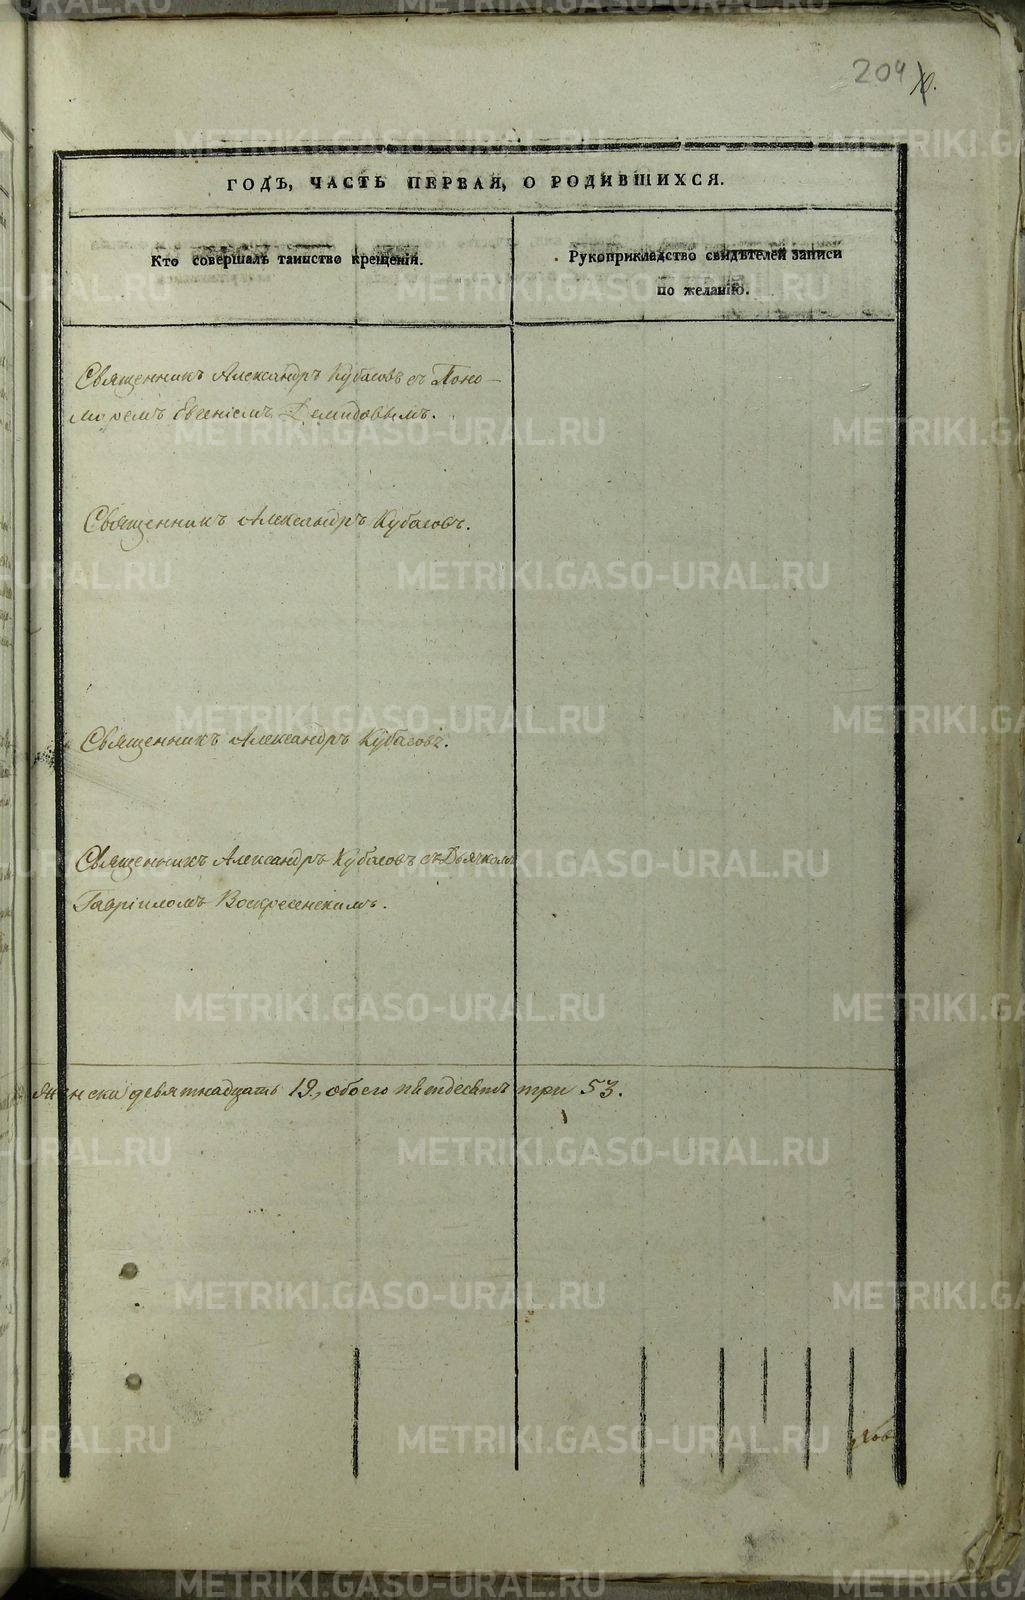 204
ГОДЪ, ЧАСТЬ ПЕРВАЯ, О РОДИВШИХСЯ.
Кто совершалъ таинство крещенія.
Рукоприкладство свидѣтелей записи
по желанію.
Священникъ Александръ Кубасовъ съ Поно-
маремъ Евгеніемъ Демидовымъ.
Священникъ Александръ Кубасовъ.
Священникъ Александръ Кубасовъ.
Священникъ Александръ Кубасовъ съ Дьячкомъ
Гавріиломъ Воскресенскимъ.
женска девятнадцать 19., обоего пятдесятъ три 53.
METRIKI.GASO-URAL.RU